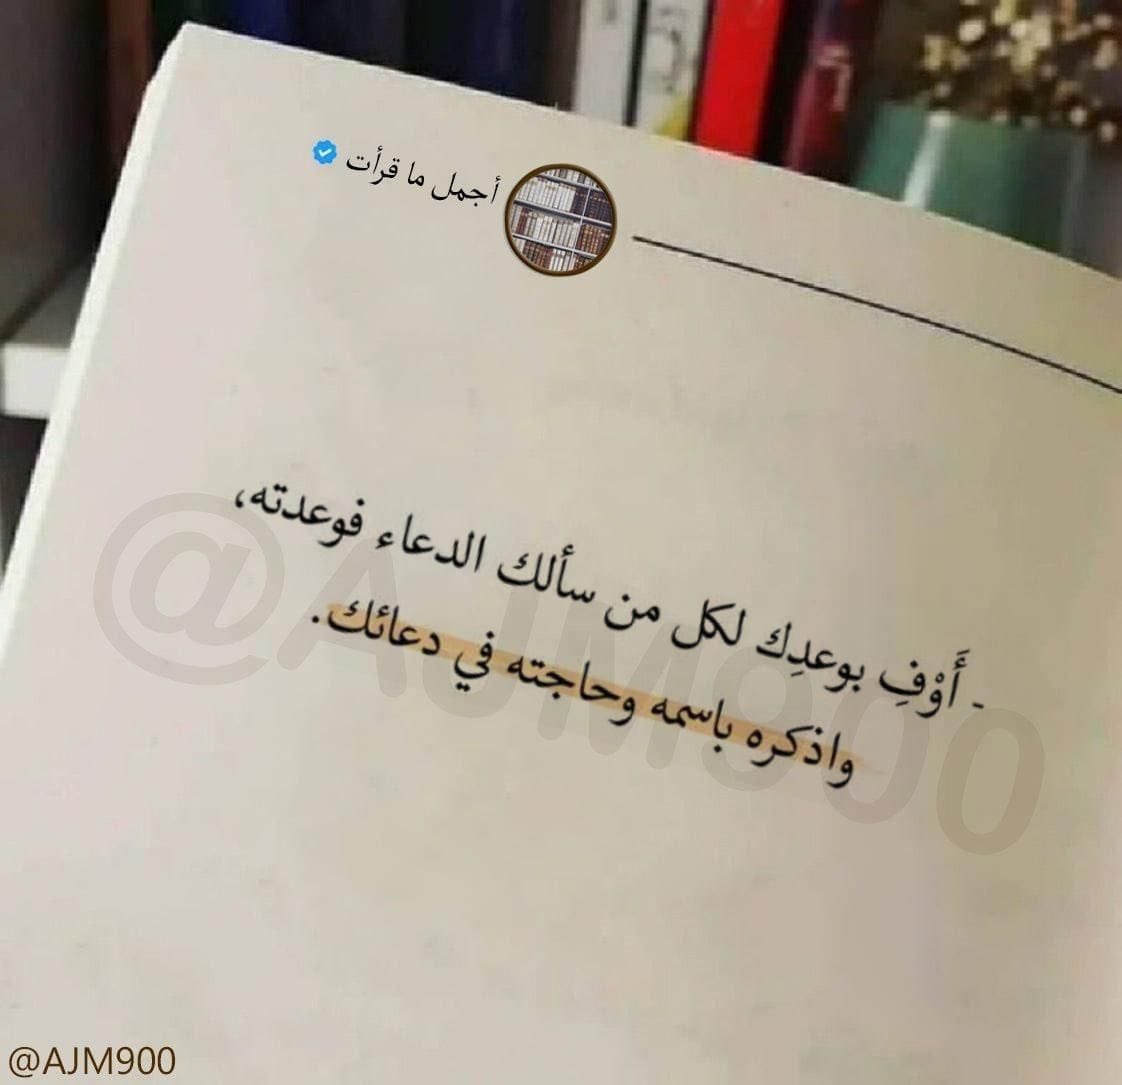 أجمل ما قرأت
- أَوْفِ بوعدِك لكل من سألك الدعاء فوعدته،
واذكره باسمه وحاجته في دعائك.
@AJM900
@AJM900